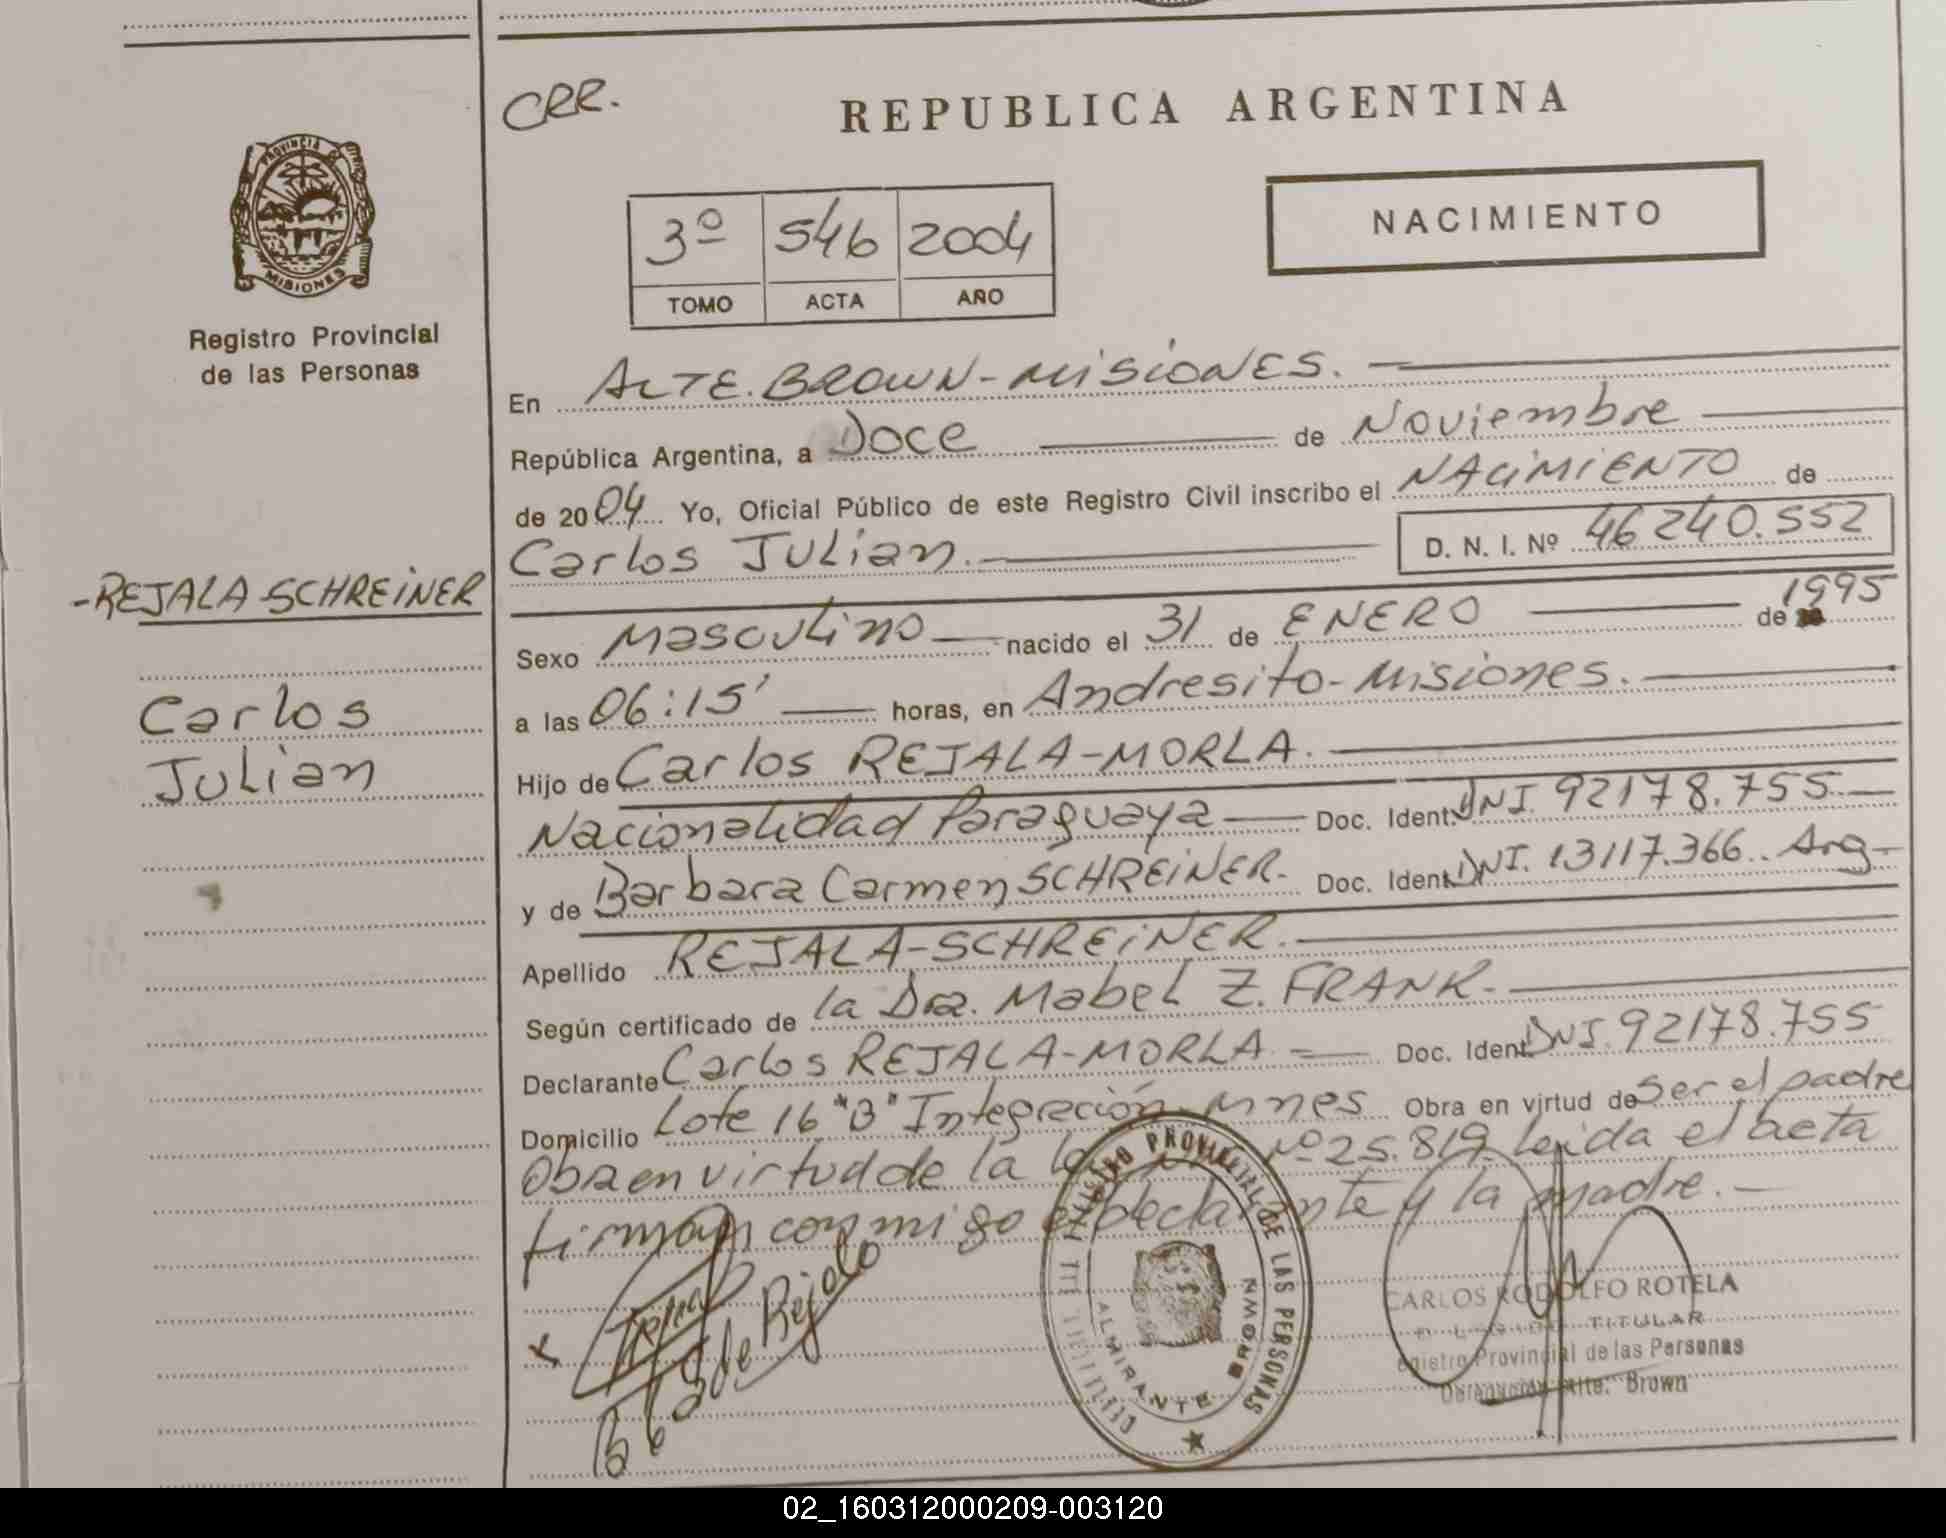 CRR.
REPUBLICA ARGENTINA
PROVINCIA DE
MISIONES
Registro Provincial
de las Personas
3º 546 2004
TOMO ACTA AÑO
NACIMIENTO
En ALTE. BROWN - MISIONES.
República Argentina, a Doce de Noviembre
de 2004 Yo, Oficial Público de este Registro Civil inscribo el NACIMIENTO de
Carlos Julian. D. N. I. Nº 46240.552
- REJALA SCHREINER
Carlos
Julian
Sexo Masculino nacido el 31 de ENERO de 1995
a las 06:15' horas, en Andresito - Misiones.
Hijo de Carlos REJALA-MORLA.
Nacionalidad Paraguaya Doc. Ident. DNI. 92178.755
y de Barbara Carmen SCHREINER. Doc. Ident. DNI. 13117.366.. Arg
Apellido REJALA-SCHREINER.
Según certificado de la Dra. Mabel Z. FRANK
Declarante Carlos REJALA-MORLA Doc. Ident. DNI. 92178.755
Domicilio Lote 16 "B" Integración - Mnes Obra en virtud de Ser el padre
Obra en virtud de la ley Nº 25.819. Leida el acta
firman conmigo el declarante y la madre.
x
B S de Rejala
REGISTRO PROVINCIAL DE LAS PERSONAS
ALMIRANTE BROWN
CARLOS RODOLFO ROTELA
TITULAR
Registro Provincial de las Personas
Delegación Alte. Brown
02_160312000209-003120